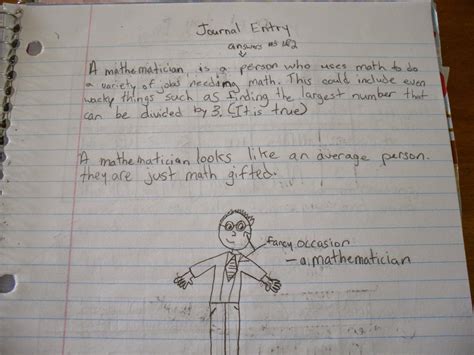 Journal Entry
answers #1 & 2
A mathematician, is a person who uses math to do
a variety of jobs needing math. This could include even
wacky things such as finding the largest number that
can be divided by 3. (It is true)
A mathematician looks like an average person.
they are just math gifted.
fancy occasion
- a mathematician